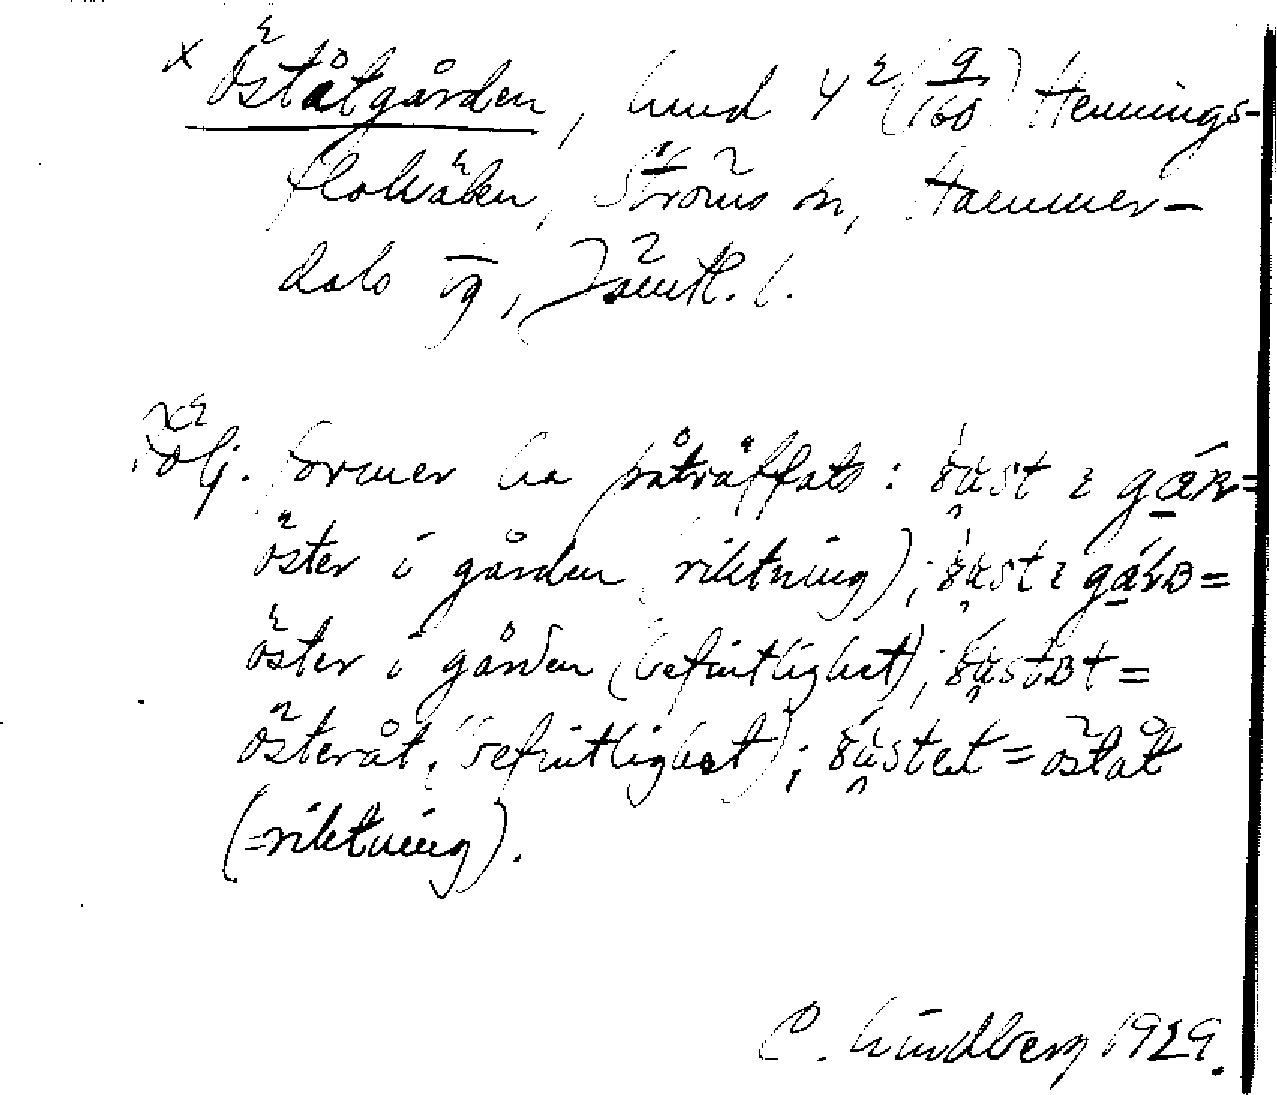 x Öståtgården, hmd 4² (9/160) Hennings-
flohåken, Ströms sn, Hammer-
dals tg, Jämtl. l.
Följ. former ha påträffats:
öster i gården riktning);
öster i gården (befintlighet);
österåt (befintlighet); = öståt
(=riktning).
C. Lindberg 1929.